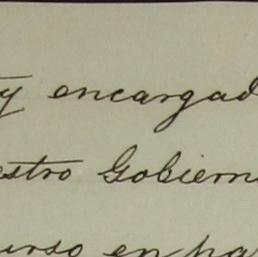 y encargad
estro Gobiern
urso en pa